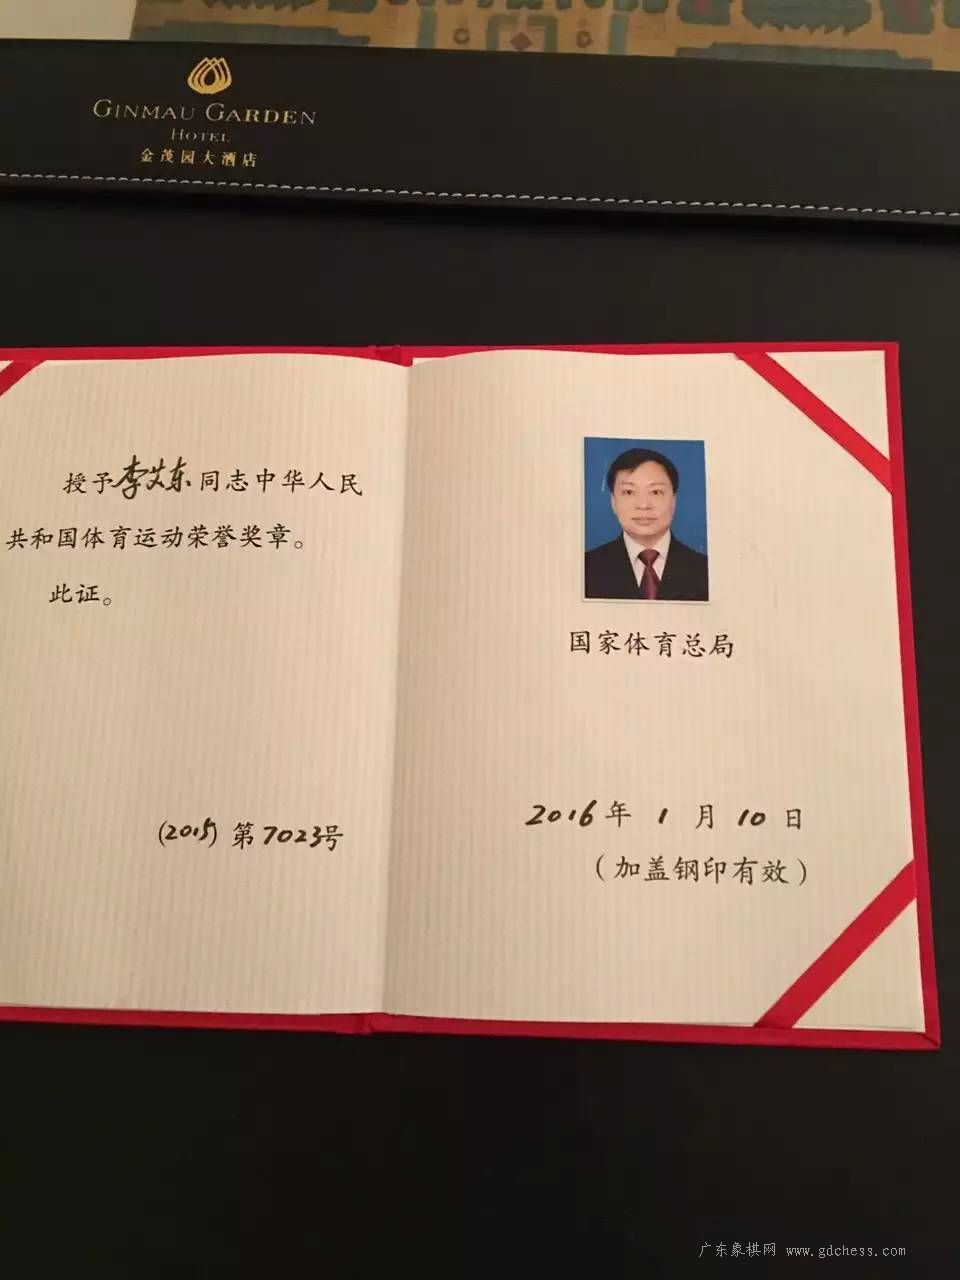 GINMAU GARDEN
HOTEL
金茂园大酒店
授予李艾东同志中华人民
共和国体育运动荣誉奖章。
此证。
(2015) 第7023号
国家体育总局
2016年 1 月 10 日
(加盖钢印有效)
广东象棋网 www.gdchess.com